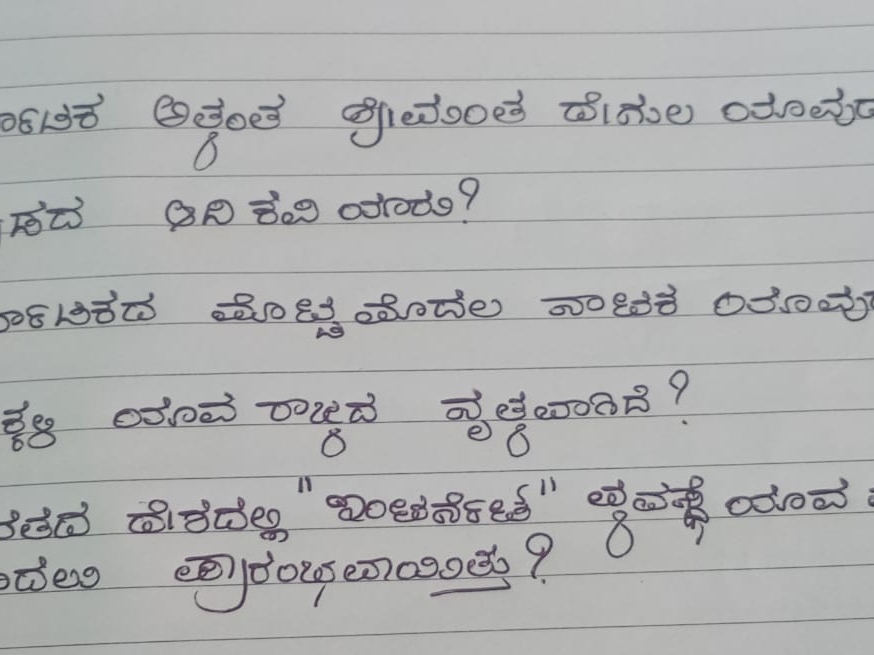 ರ್ನಾಟಕ ಅತ್ಯಂತ ಶ್ರೀಮಂತ ದೇಗುಲ ಯಾವುದ
ಡದ ಆದಿ ಕವಿ ಯಾರು?
ರ್ನಾಟಕದ ಮೊಟ್ಟಮೊದಲ ನಾಟಕ ಯಾವುದ
ಕ್ಕಳಿ ಯಾವ ರಾಜ್ಯದ ನೃತ್ಯವಾಗಿದೆ?
ರತದ ದೇಶದಲ್ಲಿ "ಇಂಟರ್ನೆಟ್" ವ್ಯವಸ್ಥೆ ಯಾವ
ದಲು ಪ್ರಾರಂಭವಾಯಿತು?